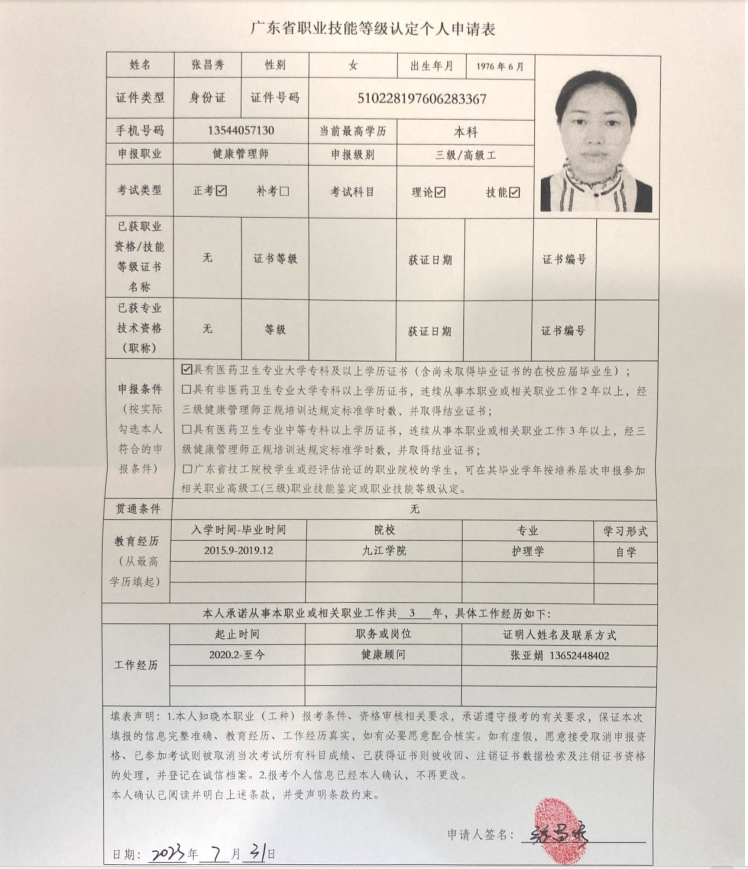 广东省职业技能等级认定个人申请表
姓名 张昌秀 性别 女 出生年月 1976年6月
证件类型 身份证 证件号码 510228197606283367
手机号码 13544057130 当前最高学历 本科
申报职业 健康管理师 申报级别 三级/高级工
考试类型 正考☑ 补考☐ 考试科目 理论☑ 技能☑
已获职业资格/技能等级证书名称 无 证书等级 获证日期 证书编号
已获专业技术资格（职称） 无 等级 获证日期 证书编号
申报条件（按实际勾选本人符合的申报条件）
☑具有医药卫生专业大学专科及以上学历证书（含尚未取得毕业证书的在校应届毕业生）；
☐具有非医药卫生专业大学专科以上学历证书，连续从事本职业或相关职业工作2年以上，经
三级健康管理师正规培训达规定标准学时数，并取得结业证书；
☐具有医药卫生专业中等专科以上学历证书，连续从事本职业或相关职业工作3年以上，经三
级健康管理师正规培训达规定标准学时数，并取得结业证书；
☐广东省技工院校学生或经评估论证的职业院校的学生，可在其毕业学年按培养层次申报参加
相关职业高级工(三级)职业技能鉴定或职业技能等级认定。
贯通条件 无
教育经历（从最高学历填起）
入学时间-毕业时间 院校 专业 学习形式
2015.9-2019.12 九江学院 护理学 自学
本人承诺从事本职业或相关职业工作共 3 年，具体工作经历如下：
工作经历
起止时间 职务或岗位 证明人姓名及联系方式
2020.2-至今 健康顾问 张亚娟 13652448402
填表声明：1.本人知晓本职业（工种）报考条件、资格审核相关要求，承诺遵守报考的有关要求，保证本次
填报的信息完整准确、教育经历、工作经历真实，如有必要愿意配合核实。如有虚假，愿意接受取消申报资
格、已参加考试则被取消当次考试所有科目成绩、已获得证书则被收回、注销证书数据检索及注销证书资格
的处理，并登记在诚信档案。2.报考个人信息已经本人确认，不再更改。
本人确认已阅读并明白上述条款，并受声明条款约束。
申请人签名： 张昌秀
日期：2023年7月31日